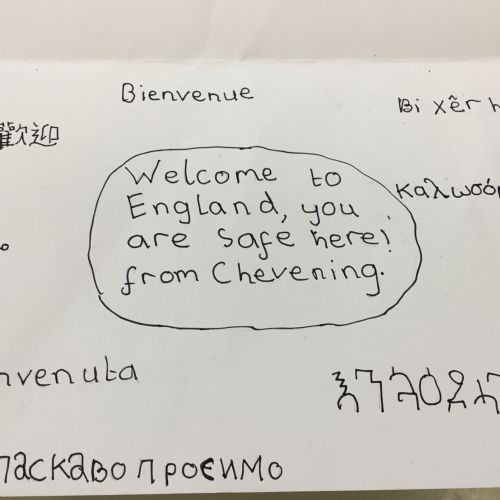 Bienvenue
Bi xêr h
歡迎
Welcome to
England, you
are safe here!
from Chevening.
καλωσό
nvenuta
ласкаво проєимо